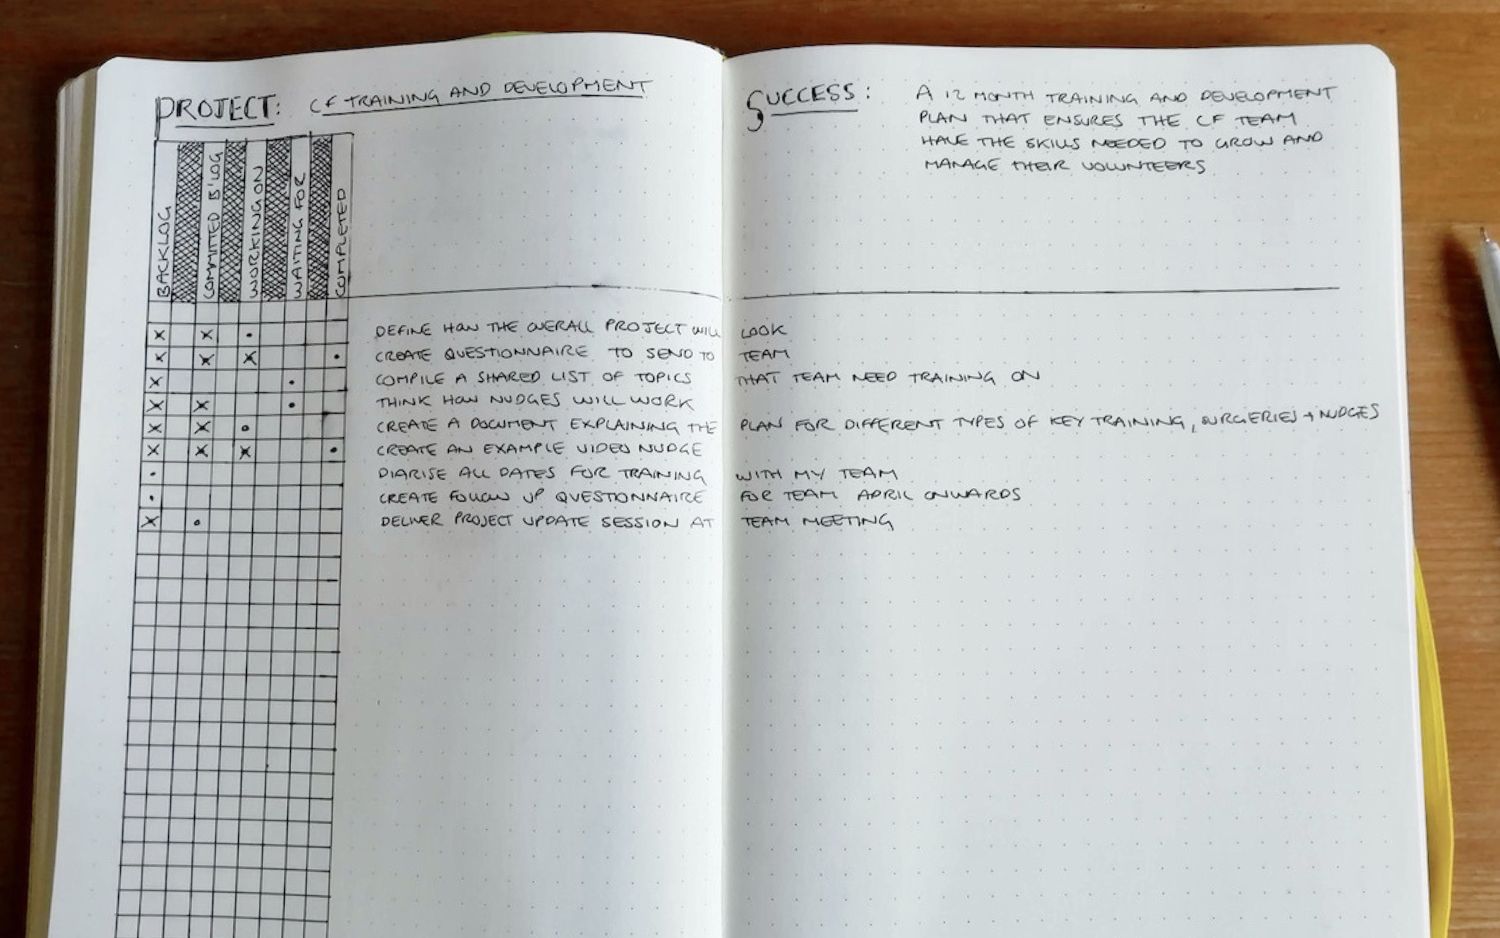 PROJECT: CF TRAINING AND DEVELOPMENT
BACKLOG
COMMITTED B'LOG
WORKING ON
WAITING FOR
COMPLETED
SUCCESS: A 12 MONTH TRAINING AND DEVELOPMENT
PLAN THAT ENSURES THE CF TEAM
HAVE THE SKILLS NEEDED TO GROW AND
MANAGE THEIR VOLUNTEERS
x x • DEFINE HOW THE OVERALL PROJECT WILL LOOK
x x x • CREATE QUESTIONNAIRE TO SEND TO TEAM
x • COMPILE A SHARED LIST OF TOPICS THAT TEAM NEED TRAINING ON
x x • THINK HOW NUDGES WILL WORK
x x • CREATE A DOCUMENT EXPLAINING THE PLAN FOR DIFFERENT TYPES OF KEY TRAINING, SURGERIES + NUDGES
x x x • CREATE AN EXAMPLE VIDEO NUDGE
• DIARISE ALL DATES FOR TRAINING WITH MY TEAM
• CREATE FOLLOW UP QUESTIONNAIRE FOR TEAM APRIL ONWARDS
x • DELIVER PROJECT UPDATE SESSION AT TEAM MEETING